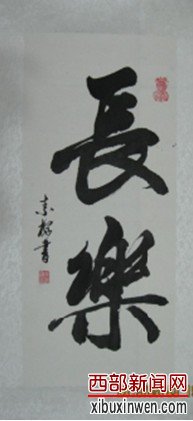 長樂
書
西部新闻网
xibuxinwen.com